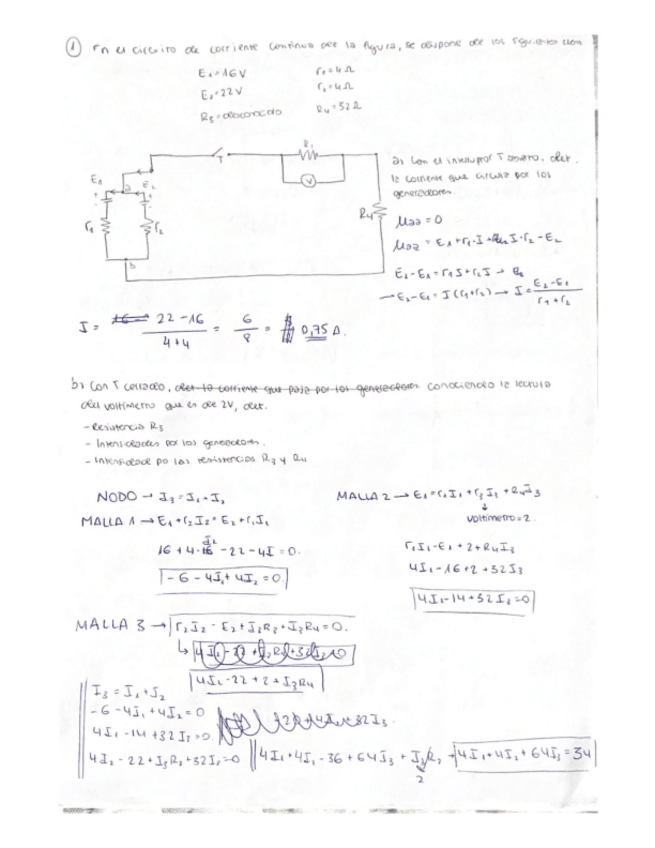 1 En el circuito de corriente continua de la figura, se dispone de los siguientes elem
E1=16V r1=4Ω
E2=22V r2=4Ω
R3=desconocido R4=32Ω
T
R3
V
E1 a E2
r1 r2
R4
b
a) Con el interruptor T abierto, det.
la corriente que circula por los
generadores.
Uaa=0
Uaa = E1+r1·I+ I·r2-E2
E2-E1=r1I+r2I →
→E2-E1=I(r1+r2)→ I= E2-E1 / r1+r2
I = 22-16 / 4+4 = 6 / 8 = 0,75 A.
b) Con T cerrado, det la corriente que pasa por los generadores conociendo la lectura
del voltímetro que es de 2V, det.
- Resistencia R3
- Intensidades por los generadores.
- Intensidad po las resistencias R3 y R4
NODO → I3=I1+I2
MALLA 1→E1+r2I2=E2+r1I1
16+4·I2-22-4I=0.
-6-4I1+4I2=0.
MALLA 2→E1=r1I1+r3I3+R4I3
voltímetro=2.
r1I1-E1+2+R4I3
4I1-16+2+32I3
4I1-14+32I3=0
MALLA 3→ r2I2-E2+I3R3+I3R4=0.
4I2-22+2+I3R4
I3=I1+I2
-6-4I1+4I2=0
4I1-14+32I3=0
4I2-22+I3R3+32I3=0
4I1+4I2-36+64I3+I3R3→ 4I1+4I2+64I3=34
2